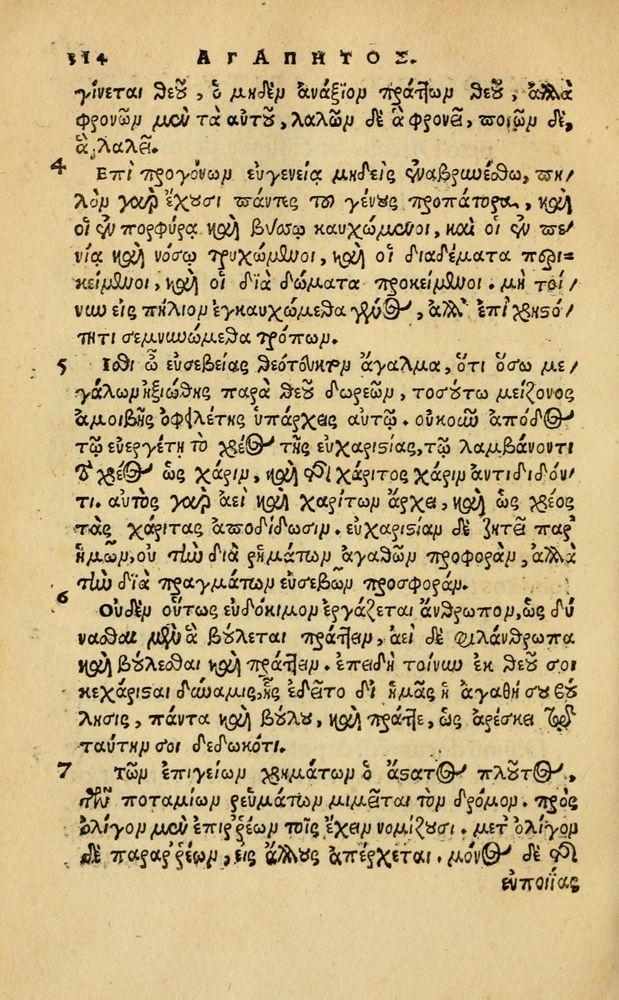 314 ΑΓΑΠΗΤΟΣ.
γίνεται θεοῦ, ὁ μηδὲν ἀνάξιον πράττων θεοῦ, ἀλλὰ
φρονῶν μὲν τὰ αὐτοῦ, λαλῶν δὲ ἃ φρονεῖ, ποιῶν δὲ,
ἃ λαλεῖ.
4 Ἐπὶ προγόνων εὐγενείᾳ μηδεὶς ἐναβρυνέσθω, πη-
λὸν γὰρ ἔχουσι πάντες τοῦ γένους προπάτορα, καὶ
οἱ ἐν πορφύρᾳ καὶ βύσσῳ καυχώμενοι, καὶ οἱ ἐν πε-
νίᾳ καὶ νόσῳ τρυχώμενοι, καὶ οἱ διαδέματα περι-
κείμενοι, καὶ οἱ διὰ δώματα προκείμενοι. μὴ τοί-
νυν εἰς πήλινον ἐγκαυχώμεθα γένος, ἀλλ' ἐπὶ χρηστό-
τητι σεμνυνώμεθα τρόπων.
5 Ἴσθι ὦ εὐσεβείας θεότευκτον ἄγαλμα, ὅτι ὅσῳ με-
γάλων ἠξιώθης παρὰ θεοῦ δωρεῶν, τοσούτῳ μείζονος
ἀμοιβῆς ὀφειλέτης ὑπάρχεις αὐτῷ. οὐκοῦν ἀπόδος
τῷ εὐεργέτῃ τὸ χρέος τῆς εὐχαριστίας, τῷ λαμβάνοντι
τὸ χρέος ὡς χάριν, καὶ ἀντὶ χάριτος χάριν ἀντιδιδόν-
τι. αὐτὸς γὰρ ἀεὶ καὶ χαρίτων ἄρχει, καὶ ὡς χρέος
τὰς χάριτας ἀποδίδωσιν. εὐχαριστίαν δὲ ζητεῖ παρ'
ἡμῶν, οὐ τὴν διὰ ῥημάτων ἀγαθῶν προφοράν, ἀλλὰ
τὴν διὰ πραγμάτων εὐσεβῶν προσφοράν.
6 Οὐδὲν οὕτως εὐδόκιμον ἐργάζεται ἄνθρωπον, ὡς δύ
νασθαι μὲν ἃ βούλεται πράττειν, ἀεὶ δὲ φιλάνθρωπα
καὶ βούλεσθαι καὶ πράττειν. ἐπειδὴ τοίνυν ἐκ θεοῦ σοι
κεχάρισται δύναμις, ἧς ἐδεῖτο δι' ἡμᾶς ἡ ἀγαθή σου βού
λησις, πάντα καὶ βούλου, καὶ πράττε, ὡς ἀρέσκει τῷ
ταύτην σοι δεδωκότι.
7 Τῶν ἐπιγείων χρημάτων ὁ ἄστατος πλοῦτος,
τῶν ποταμίων ῥευμάτων μιμεῖται τὸν δρόμον. πρὸς
ὀλίγον μὲν ἐπιῤῥέων τοῖς ἔχειν νομίζουσι. μετ' ὀλίγον
δὲ παραῤῥέων, εἰς ἄλλους ἀπέρχεται. μόνος δὲ ὁ τῆς
εὐποιΐας